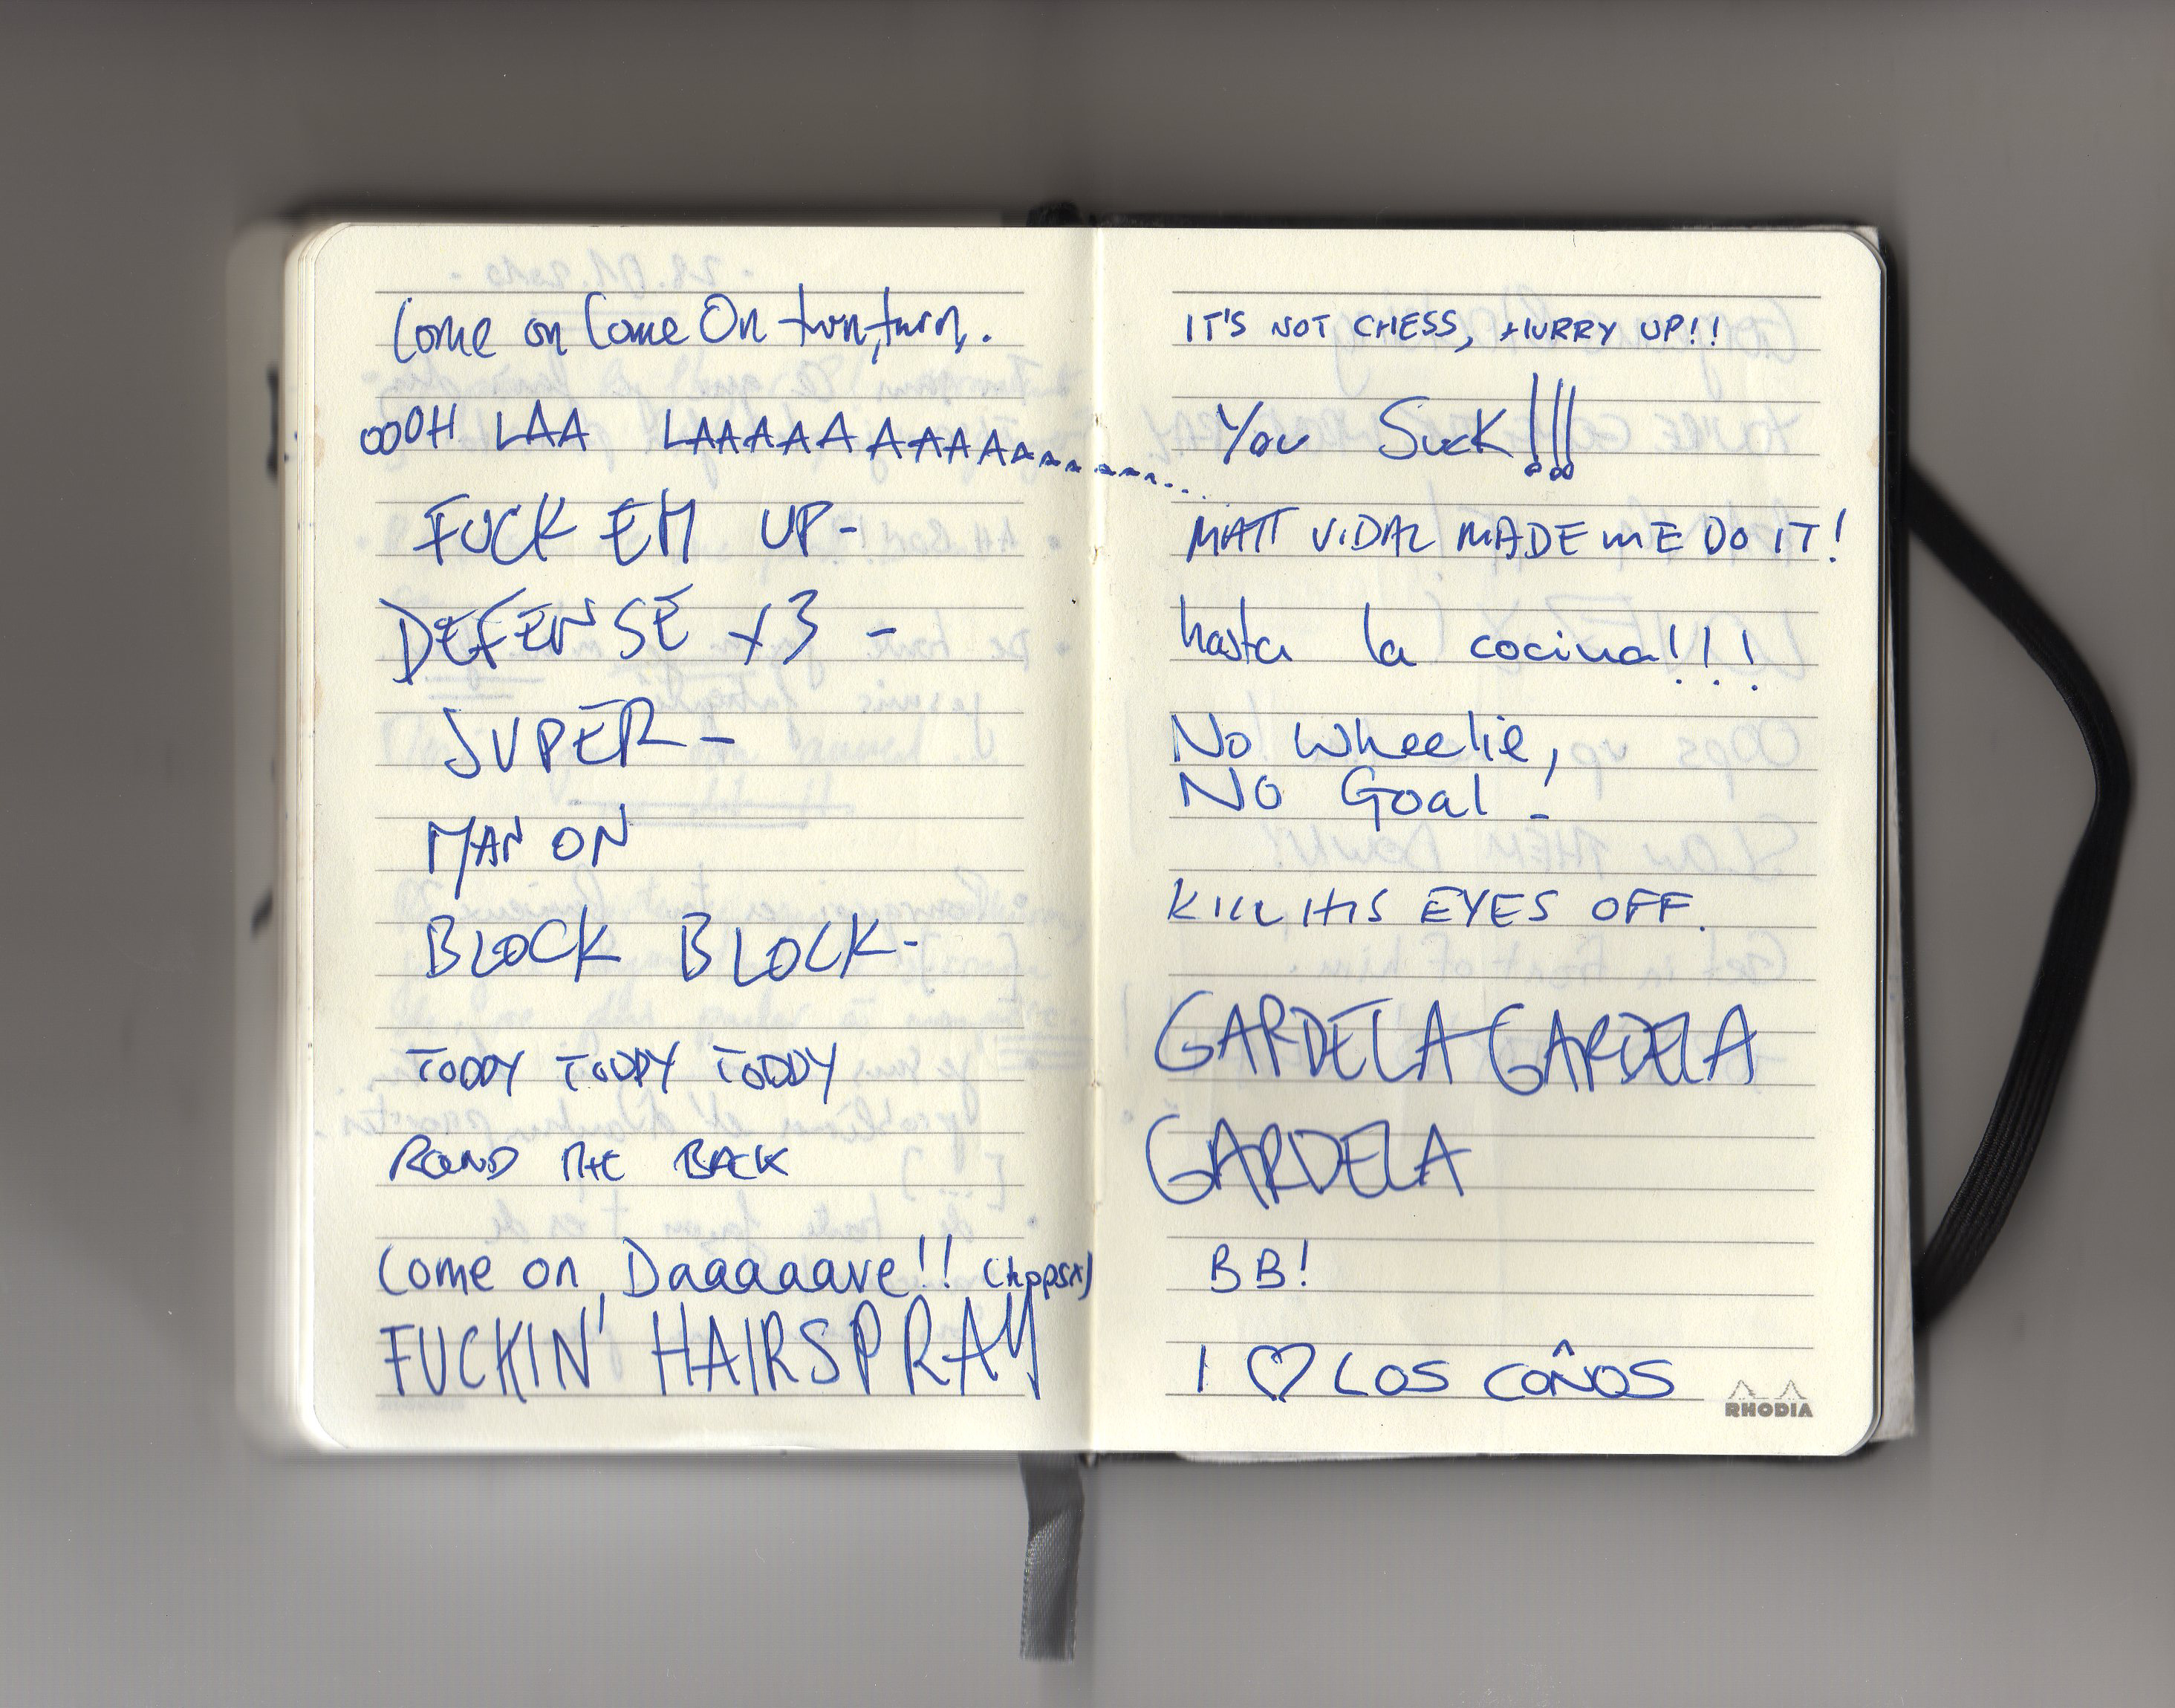 Come on Come On turn, turn.
oooH LAA LAAAAAAAAAAAAAAAA......
FUCK EM UP-
DEFENSE x3 -
SUPER -
MAN ON
BLOCK BLOCK-
TODDY TODDY TODDY
ROUND THE BACK
Come on Daaaaaave!!
FUCKIN' HAIRSPRAY
IT'S NOT CHESS, HURRY UP!!
You Suck!!!
MATT VIDAL MADE ME DO IT!
hasta la cocina!!!
No Wheelie,
No Goal!
KILL HIS EYES OFF.
GARDELA GARDELA
GARDELA
BB!
I ♡ LOS COÑOS
RHODIA